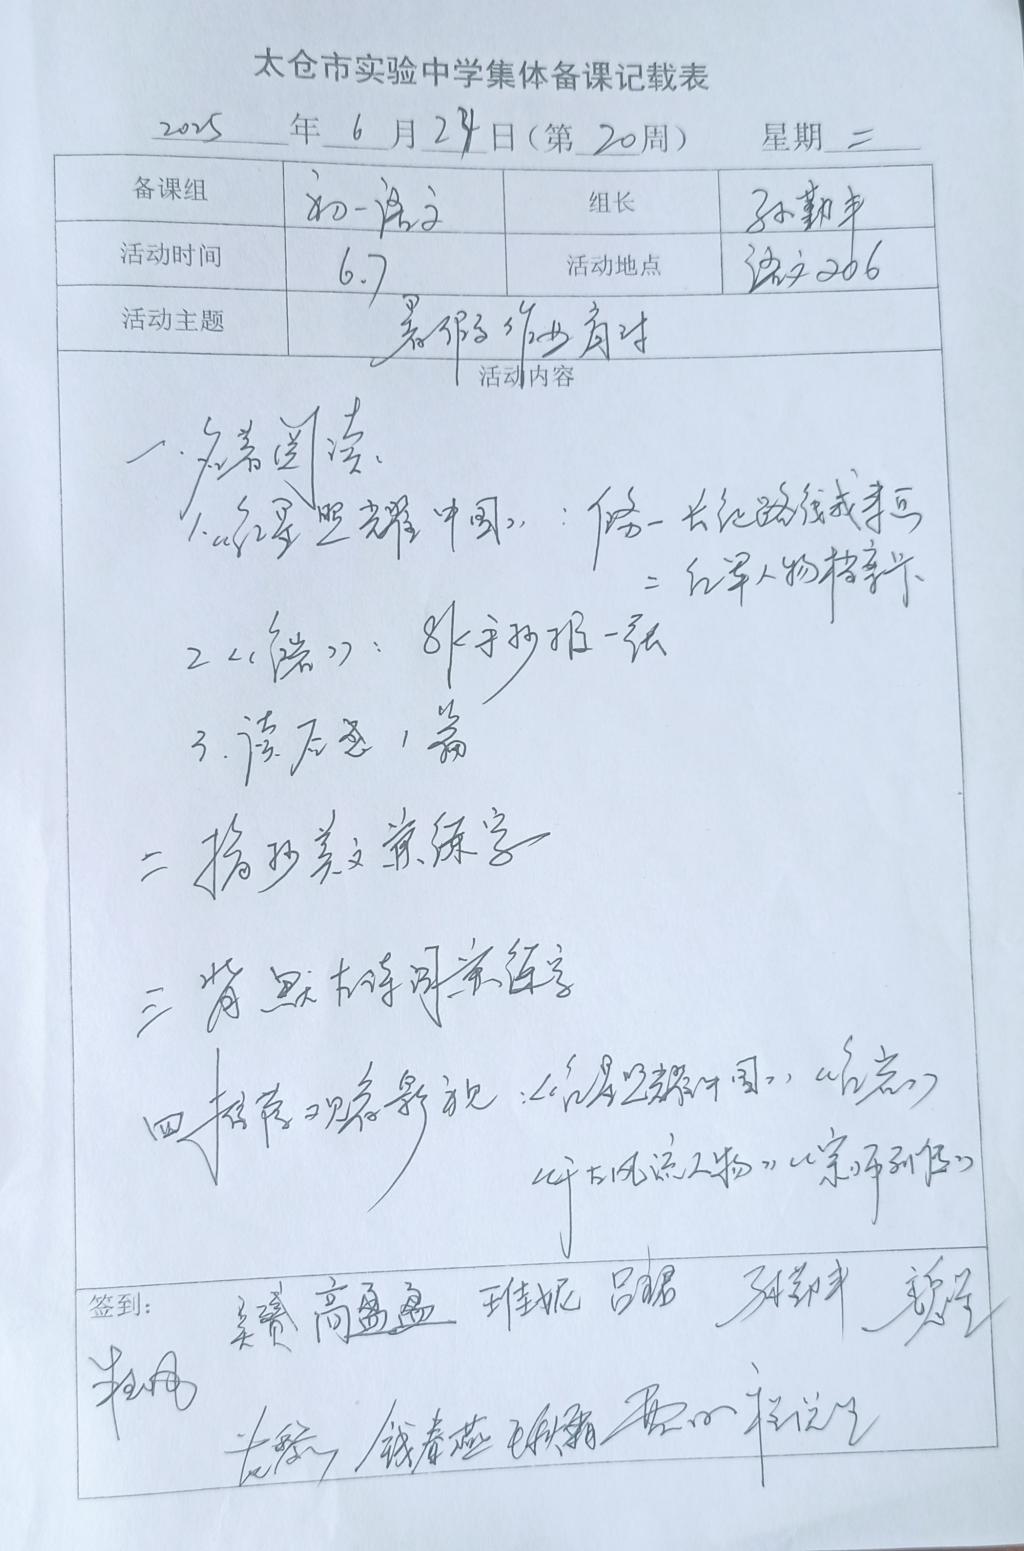 太仓市实验中学集体备课记载表
2025年6月24日（第20周） 星期二
备课组 初一语文 组长 孙勤丰
活动时间 6.7 活动地点 语文206
活动主题 暑假作业商讨
活动内容
一.名著阅读.
1.《红星照耀中国》：任务一长征路线或来回
二 红军人物档案卡
2《红岩》：8K手抄报一张
3.读后感1篇
二 摘抄美文兼练字
三 背默古诗词兼练字
四 推荐观看影视：《红星照耀中国》《红岩》
《千古风流人物》《宗师列传》
签到： 吴赟 高盈盈 王佳妮 吕珺 孙勤丰
钱春燕